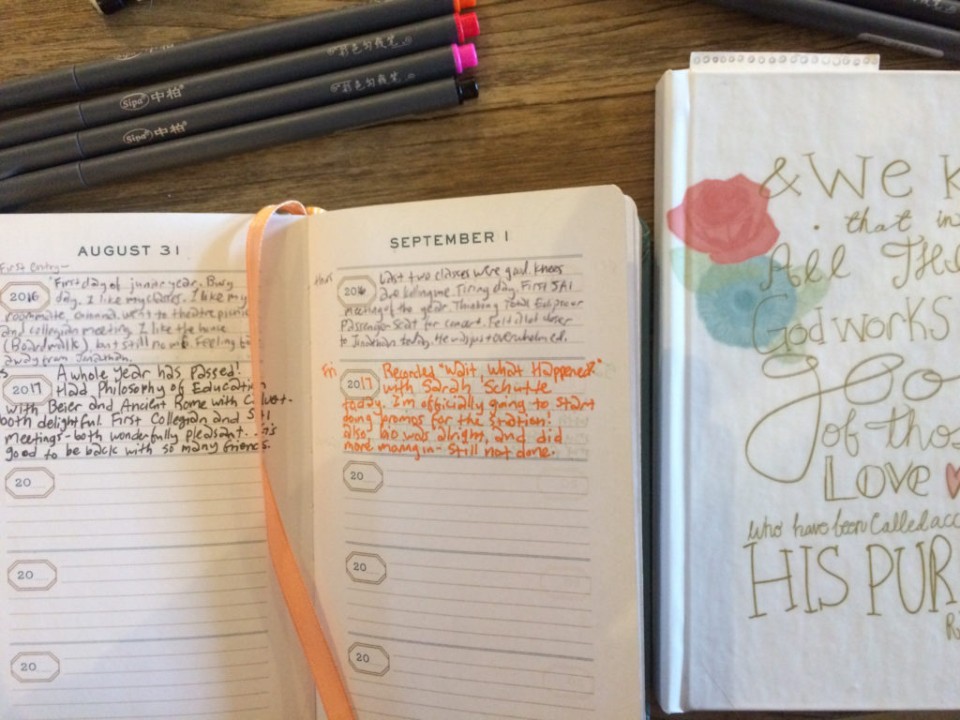 彩色勾线笔
彩色勾线笔
Sipa 中柏
Sipa 中柏
AUGUST 31
First Entry~
2016 First day of junior year. Busy
day. I like my classes. I like my
roommate, went to theatre picnic
and collegian meeting. I like the house
(Boardwalk), but still no Feeling
away from Jonathan.
A whole year has passed!
2017 Had Philosophy of Education
with Beier and Ancient Rome with Calvert-
both delightful. First Collegian and SAI
meetings-both wonderfully pleasant.
good to be back with so many friends.
20
20
20
SEPTEMBER 1
Thurs Last two classes were good. Knees
2016 are killing me. Tiring day. First SAI
meeting of the year. Thinking Total Eclipse or
Passenger Seat for concert. Felt a lot closer
to Jonathan today. He was just overwhelmed.
Fri Recorded "Wait, What Happened?"
2017 with Sarah Schutte
today. I'm officially going to start
doing promos for the station!
Also, was alright, and did
more moving in- still not done.
20
20
20
& We K
that in
All THI
God works
Goo
of thos
Love
who have been Called acc
HIS PUR
R